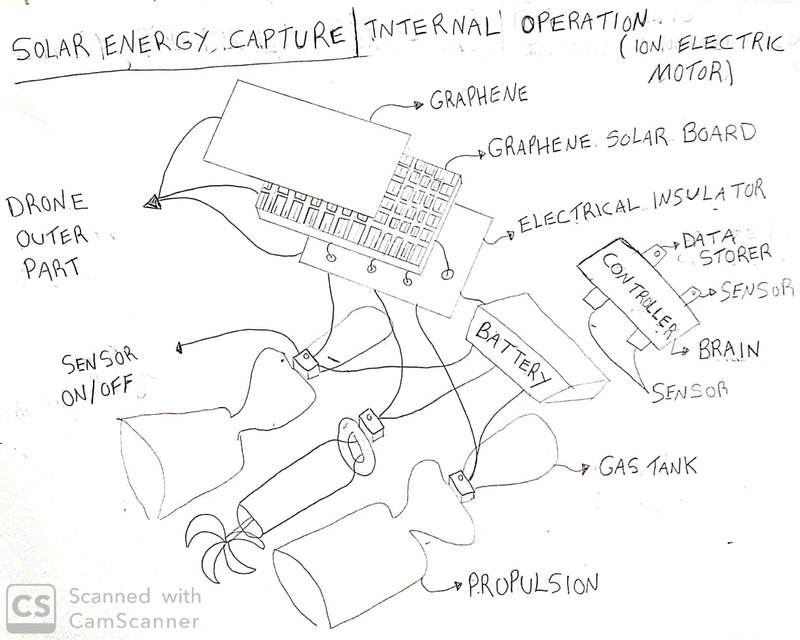 SOLAR ENERGY CAPTURE | INTERNAL OPERATION
(ION ELECTRIC
MOTOR)
GRAPHENE
GRAPHENE SOLAR BOARD
ELECTRICAL INSULATOR
DRONE
OUTER
PART
DATA
STORER
CONTROLLER
SENSOR
BRAIN
SENSOR
BATTERY
SENSOR
ON/OFF
GAS TANK
PROPULSION
CS Scanned with
CamScanner